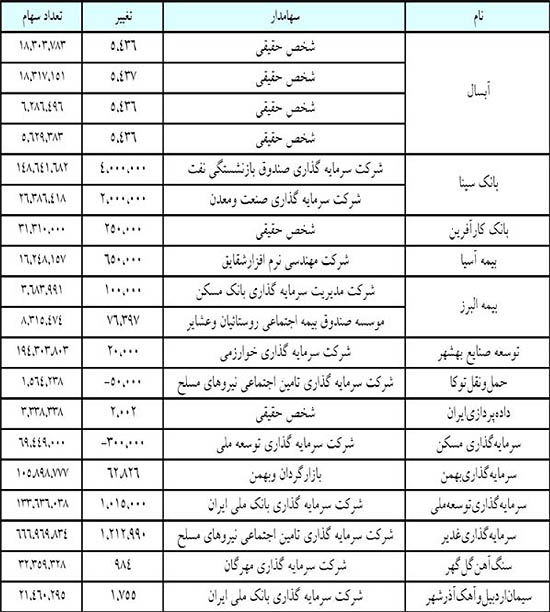 نام سهامدار تغییر تعداد سهام
آبسال شخص حقیقی ۵,۴۳۶ ۱۸,۳۰۳,۷۸۳
شخص حقیقی ۵,۴۳۷ ۱۸,۳۱۷,۱۵۱
شخص حقیقی ۵,۴۳۶ ۶,۲۸۶,۴۹۶
شخص حقیقی ۵,۴۳۶ ۵,۶۲۹,۳۸۳
بانک سینا شرکت سرمایه گذاری صندوق بازنشستگی نفت ۴,۰۰۰,۰۰۰ ۱۴۸,۶۴۱,۶۸۲
شرکت سرمایه گذاری صنعت ومعدن ۲,۰۰۰,۰۰۰ ۲۶,۳۸۶,۴۱۸
بانک کارآفرین شخص حقیقی ۲۵۰,۰۰۰ ۳۱,۳۱۰,۰۰۰
بیمه آسیا شرکت مهندسی نرم افزارشقایق ۶۵۰,۰۰۰ ۱۶,۲۴۸,۱۵۷
بیمه البرز شرکت مدیریت سرمایه گذاری بانک مسکن ۱۰۰,۰۰۰ ۳,۶۸۳,۹۹۱
موسسه صندوق بیمه اجتماعی روستائیان وعشایر ۷۶,۳۹۷ ۸,۳۱۵,۴۷۴
توسعه صنایع بهشهر شرکت سرمایه گذاری خوارزمی ۲۰,۰۰۰ ۱۹۴,۳۰۳,۸۰۳
حمل‌ونقل‌توکا شرکت سرمایه گذاری تامین اجتماعی نیروهای مسلح ۵۰,۰۰۰- ۱,۵۶۴,۲۳۸
داده‌پردازی‌ایران شخص حقیقی ۲,۰۰۲ ۳,۳۳۸,۳۳۸
سرمایه‌گذاری مسکن شرکت سرمایه گذاری توسعه ملی ۳۰۰,۰۰۰- ۶۹,۴۴۹,۰۰۰
سرمایه‌گذاری‌بهمن بازارگردان وبهمن ۶۲,۸۲۶ ۱۰۵,۸۹۸,۷۷۷
سرمایه‌گذاری‌توسعه‌ملی شرکت سرمایه گذاری بانک ملی ایران ۱,۰۱۵,۰۰۰ ۱۳۳,۶۳۶,۰۳۸
سرمایه‌گذاری‌غدیر شرکت سرمایه گذاری تامین اجتماعی نیروهای مسلح ۱,۲۱۲,۹۹۰ ۶۶۶,۹۶۹,۸۳۴
سنگ‌آهن‌گل‌گهر شرکت سرمایه گذاری مهرگان ۹۸۴ ۳۲,۳۵۹,۳۲۸
سیمان‌اردبیل‌و‌آهک‌آذرشهر شرکت سرمایه گذاری بانک ملی ایران ۱,۷۵۵ ۲۱,۴۶۰,۲۹۵